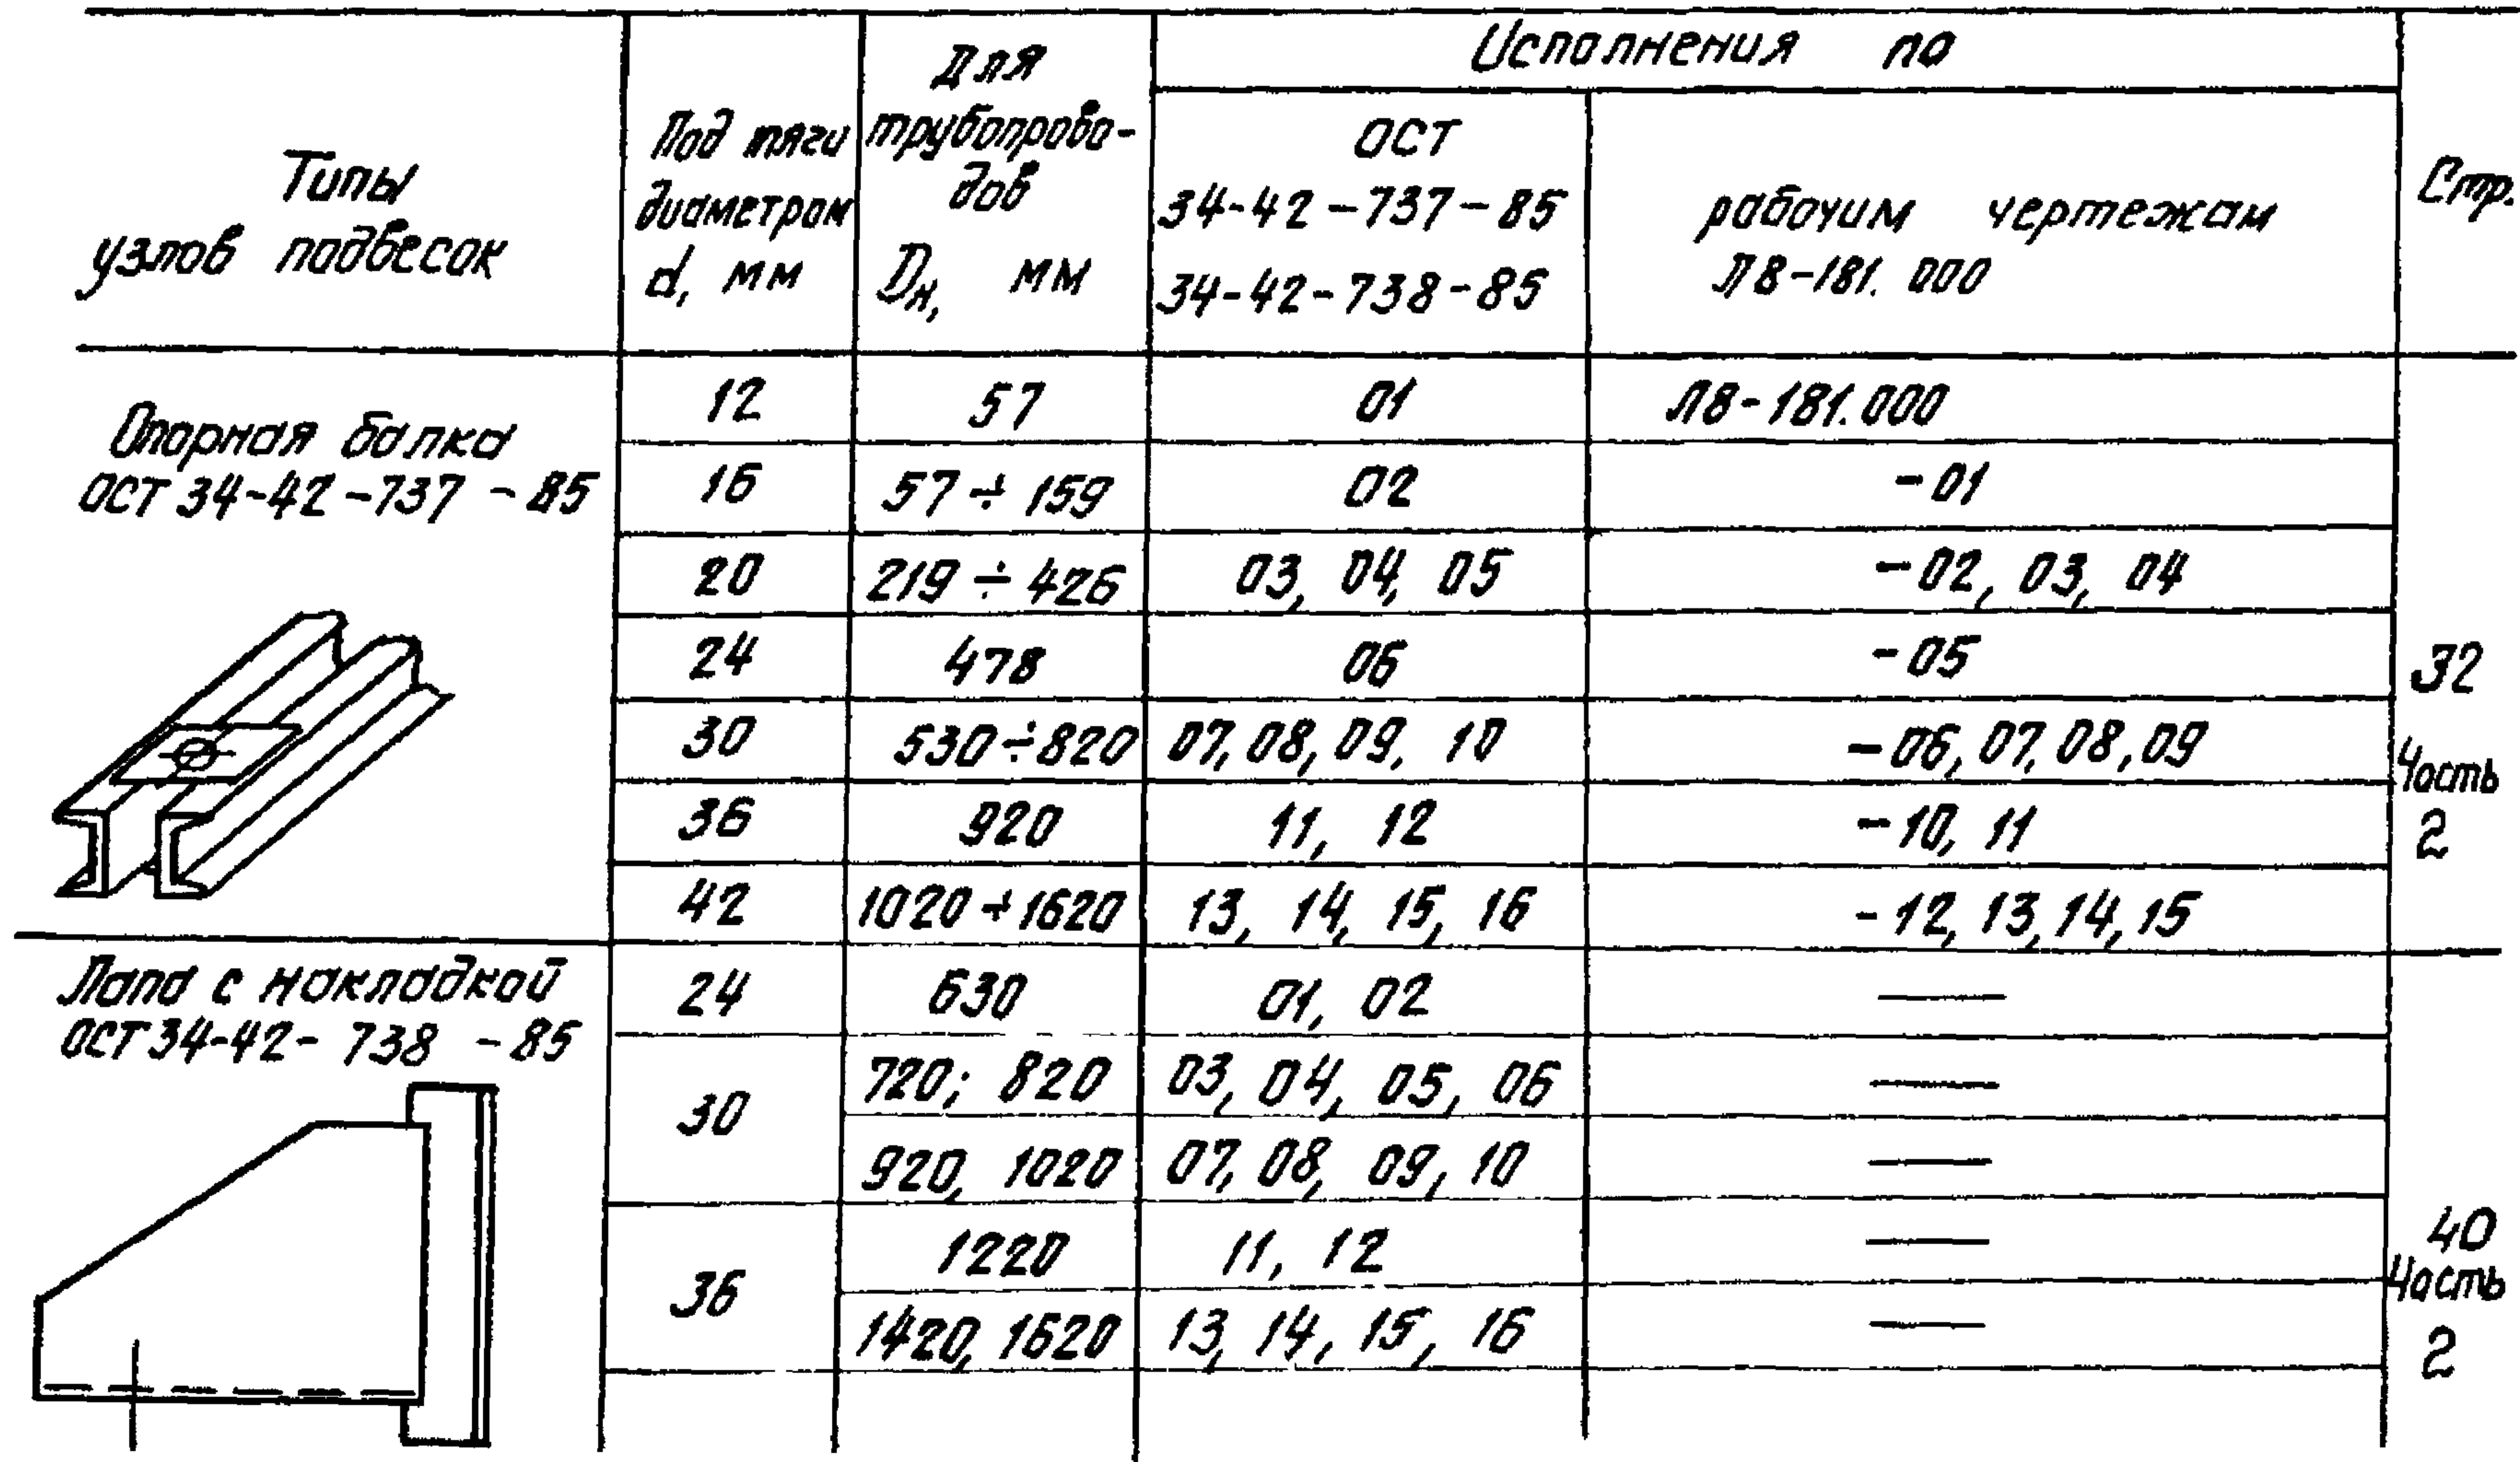 Типы
узлов подвесок
Под тяги
диаметром
d, мм
Для
трубопрово-
дов
Dн, мм
Исполнения по
ОСТ
34-42-737-85
34-42-738-85
рабочим чертежам
Л8-181.000
Стр.
Опорная балка
ОСТ 34-42-737-85
12 57 01 Л8-181.000
16 57÷159 02 -01
20 219÷426 03, 04, 05 -02, 03, 04
24 478 06 -05
30 530÷820 07, 08, 09, 10 -06, 07, 08, 09
36 920 11, 12 -10, 11
42 1020÷1620 13, 14, 15, 16 -12, 13, 14, 15
32
Часть
2
Лапа с накладкой
ОСТ 34-42-738-85
24 630 01, 02 —
30
720; 820 03, 04, 05, 06 —
920, 1020 07, 08, 09, 10 —
36
1220 11, 12 —
1420, 1620 13, 14, 15, 16 —
40
Часть
2